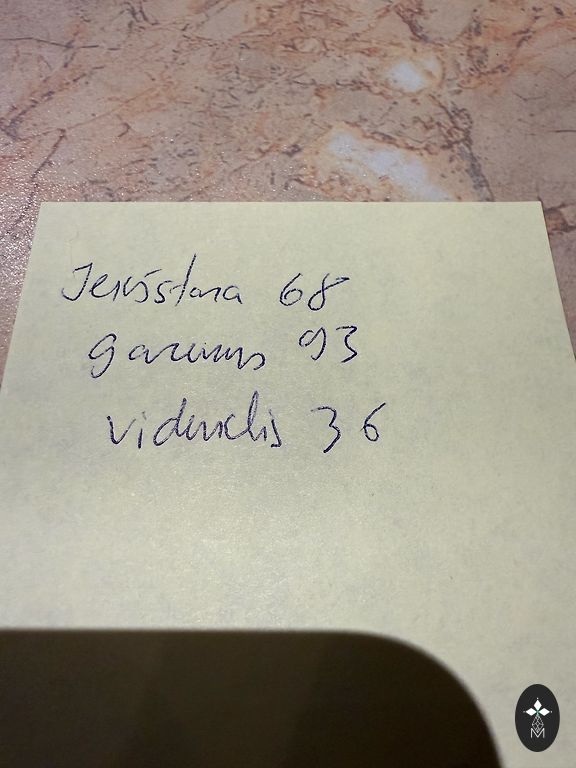 Iekšstara 68
garums 93
viduklis 36
M